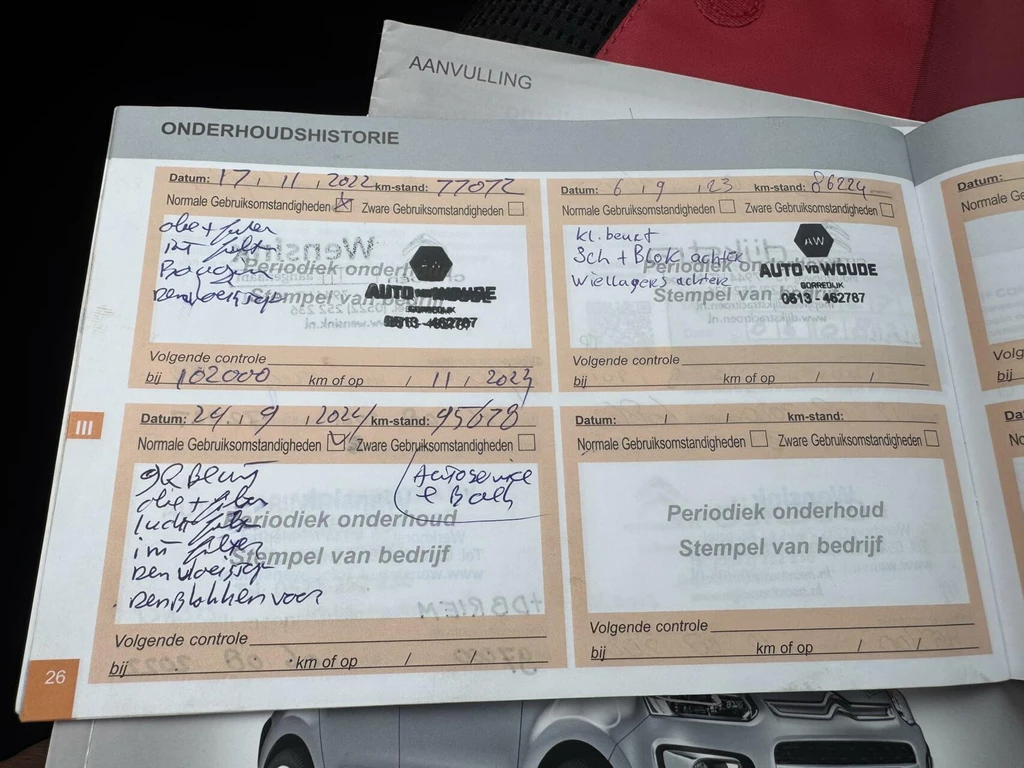 AANVULLING
ONDERHOUDSHISTORIE
Datum: 17 / 11 / 2022 km-stand: 77072
Normale Gebruiksomstandigheden ☒ Zware Gebruiksomstandigheden ☐
olie + filter
int filter
remvloeistof
Periodiek onderhoud
Stempel van bedrijf
AW
AUTO vd WOUDE
GORREDIJK
0513 - 462787
Volgende controle
bij 102000 km of op / 11 / 2023
Datum: 6 / 9 / 23 km-stand: 86224
Normale Gebruiksomstandigheden ☐ Zware Gebruiksomstandigheden ☐
Kl. beurt
Sch + Blok achter
Wiellagers achter
Periodiek onderhoud
Stempel van bedrijf
AW
AUTO vd WOUDE
GORREDIJK
0513 - 462787
Volgende controle
bij km of op / /
III
Datum: 24 / 9 / 2024 km-stand: 95678
Normale Gebruiksomstandigheden ☑ Zware Gebruiksomstandigheden ☐
Beurt
olie + filter
lucht filter
int filter
Remvloeistof
RemBlokken voor
Autoservice
Periodiek onderhoud
Stempel van bedrijf
Volgende controle
bij km of op / /
Datum: / / km-stand:
Normale Gebruiksomstandigheden ☐ Zware Gebruiksomstandigheden ☐
Periodiek onderhoud
Stempel van bedrijf
Volgende controle
bij km of op / /
26
Datum:
Normale Ge
Volg
bij
Datum:
No
Vo
bi